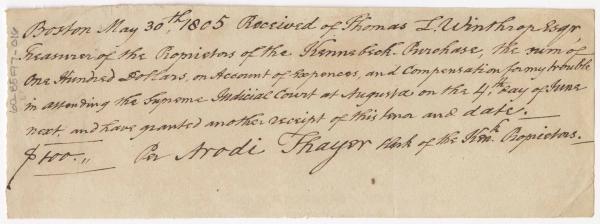 Boston May 30,th 1805 Received of Thomas L. Winthrop Esqr,
Treasurer of the Proprietors of the Kennebeck Purchase, the sum of
One Hundred Dollars, on Account of Expences, and Compensation for my trouble
in attending the Supreme Judicial Court at Augusta on the 4th day of June
next, and have granted another receipt of this tenor and date.
$100.,, Per Arodi Thayer Clerk of the Kenk. Proprietors.